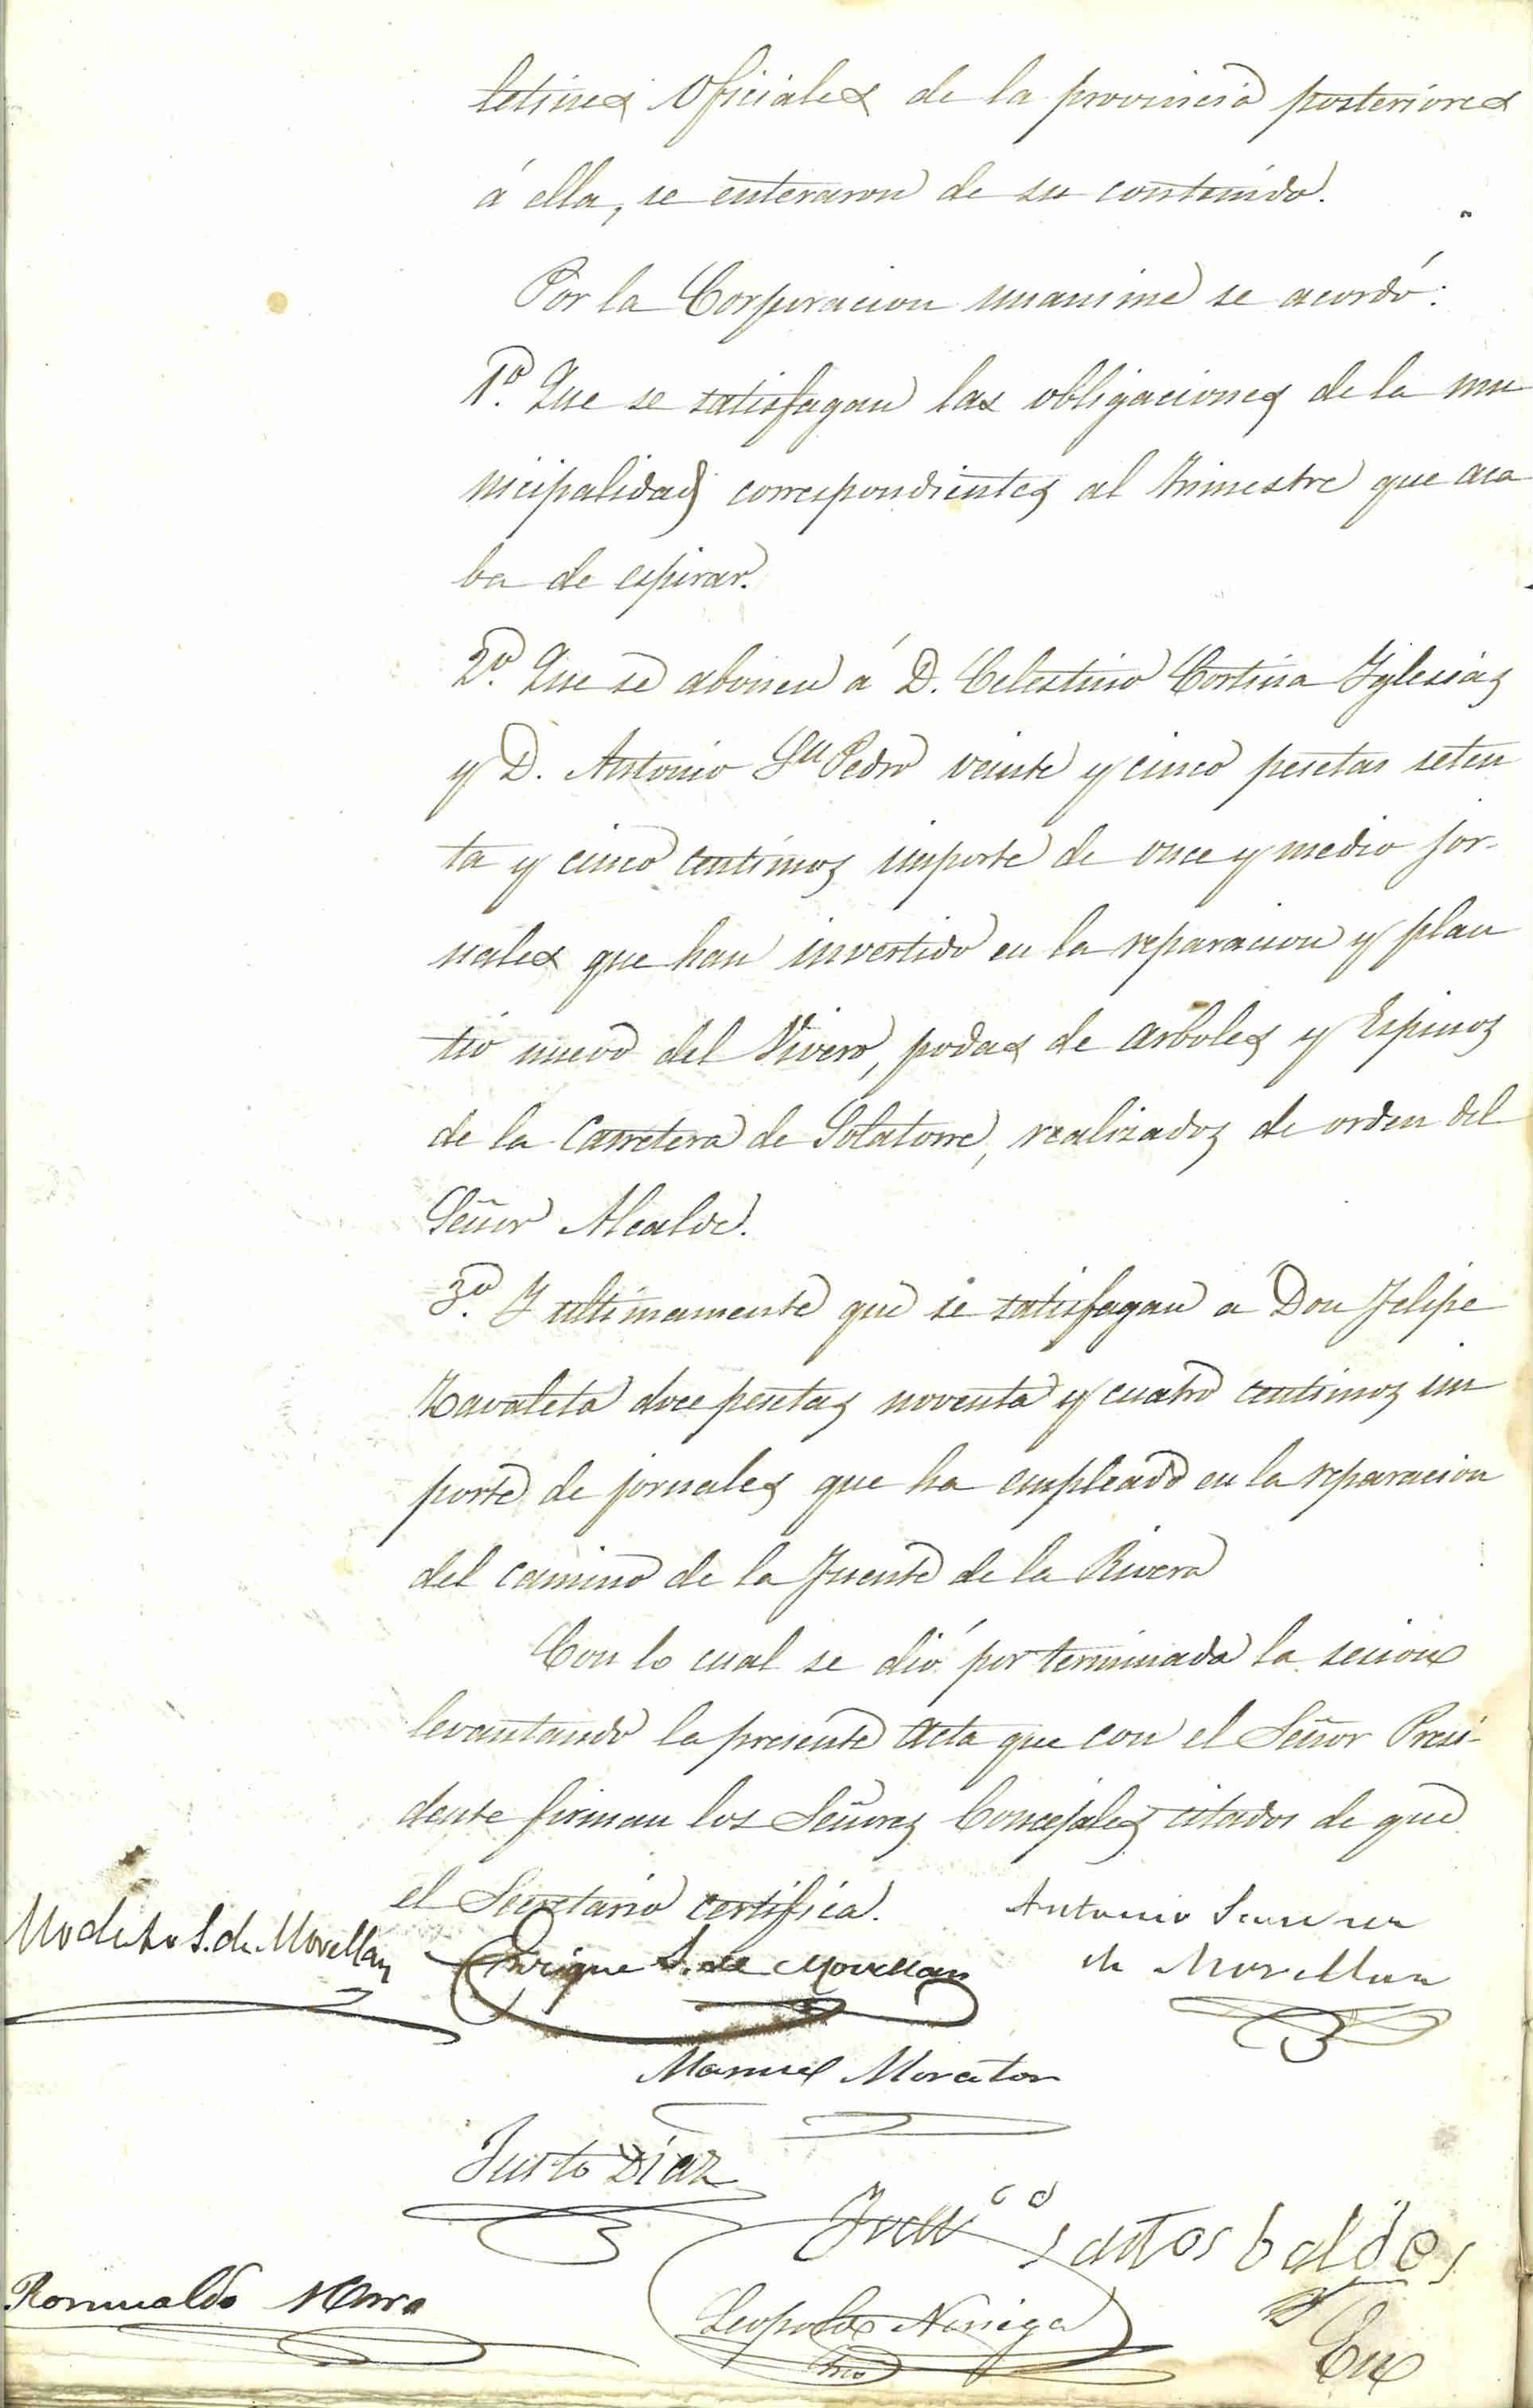 letines Oficiales de la provincia posteriores
á ella, se enteraron de su contenido.
Por la Corporacion unanime se acordó:
1º. Que se satisfagan las obligaciones de la mu
nicipalidad correspondientes al trimestre que aca
ba de espirar.
2º. Que se abonen á D. Celestino Cortina Yglesias
y D. Antonio Sn Pedro veinte y cinco pesetas seten
ta y cinco centimos importe de once y medio jor-
nales que han invertido en la reparacion y plan
tio nuevo del Vivero, podas de arboles y Espinos
de la Carretera de Solatorre, realizados de orden del
Señor Alcalde.
3º. Y ultimamente que se satisfagan a Don Felipe
Zavaleta doce pesetas noventa y cuatro centimos im
porte de jornales que ha empleado en la reparacion
del camino de la Fuente de la Rivera
Con lo cual se dió por terminada la sesion
levantando la presente Acta que con el Señor Presi-
dente firman los Señores Concejales citados de que
el Secretario certifica.
Modesto S. de Movellán
Enrique S. de Movellan
Antonio
de Movellan
Manuel
Justo Díaz
Santos
Romualdo
Leopoldo Noriega
Srio
En